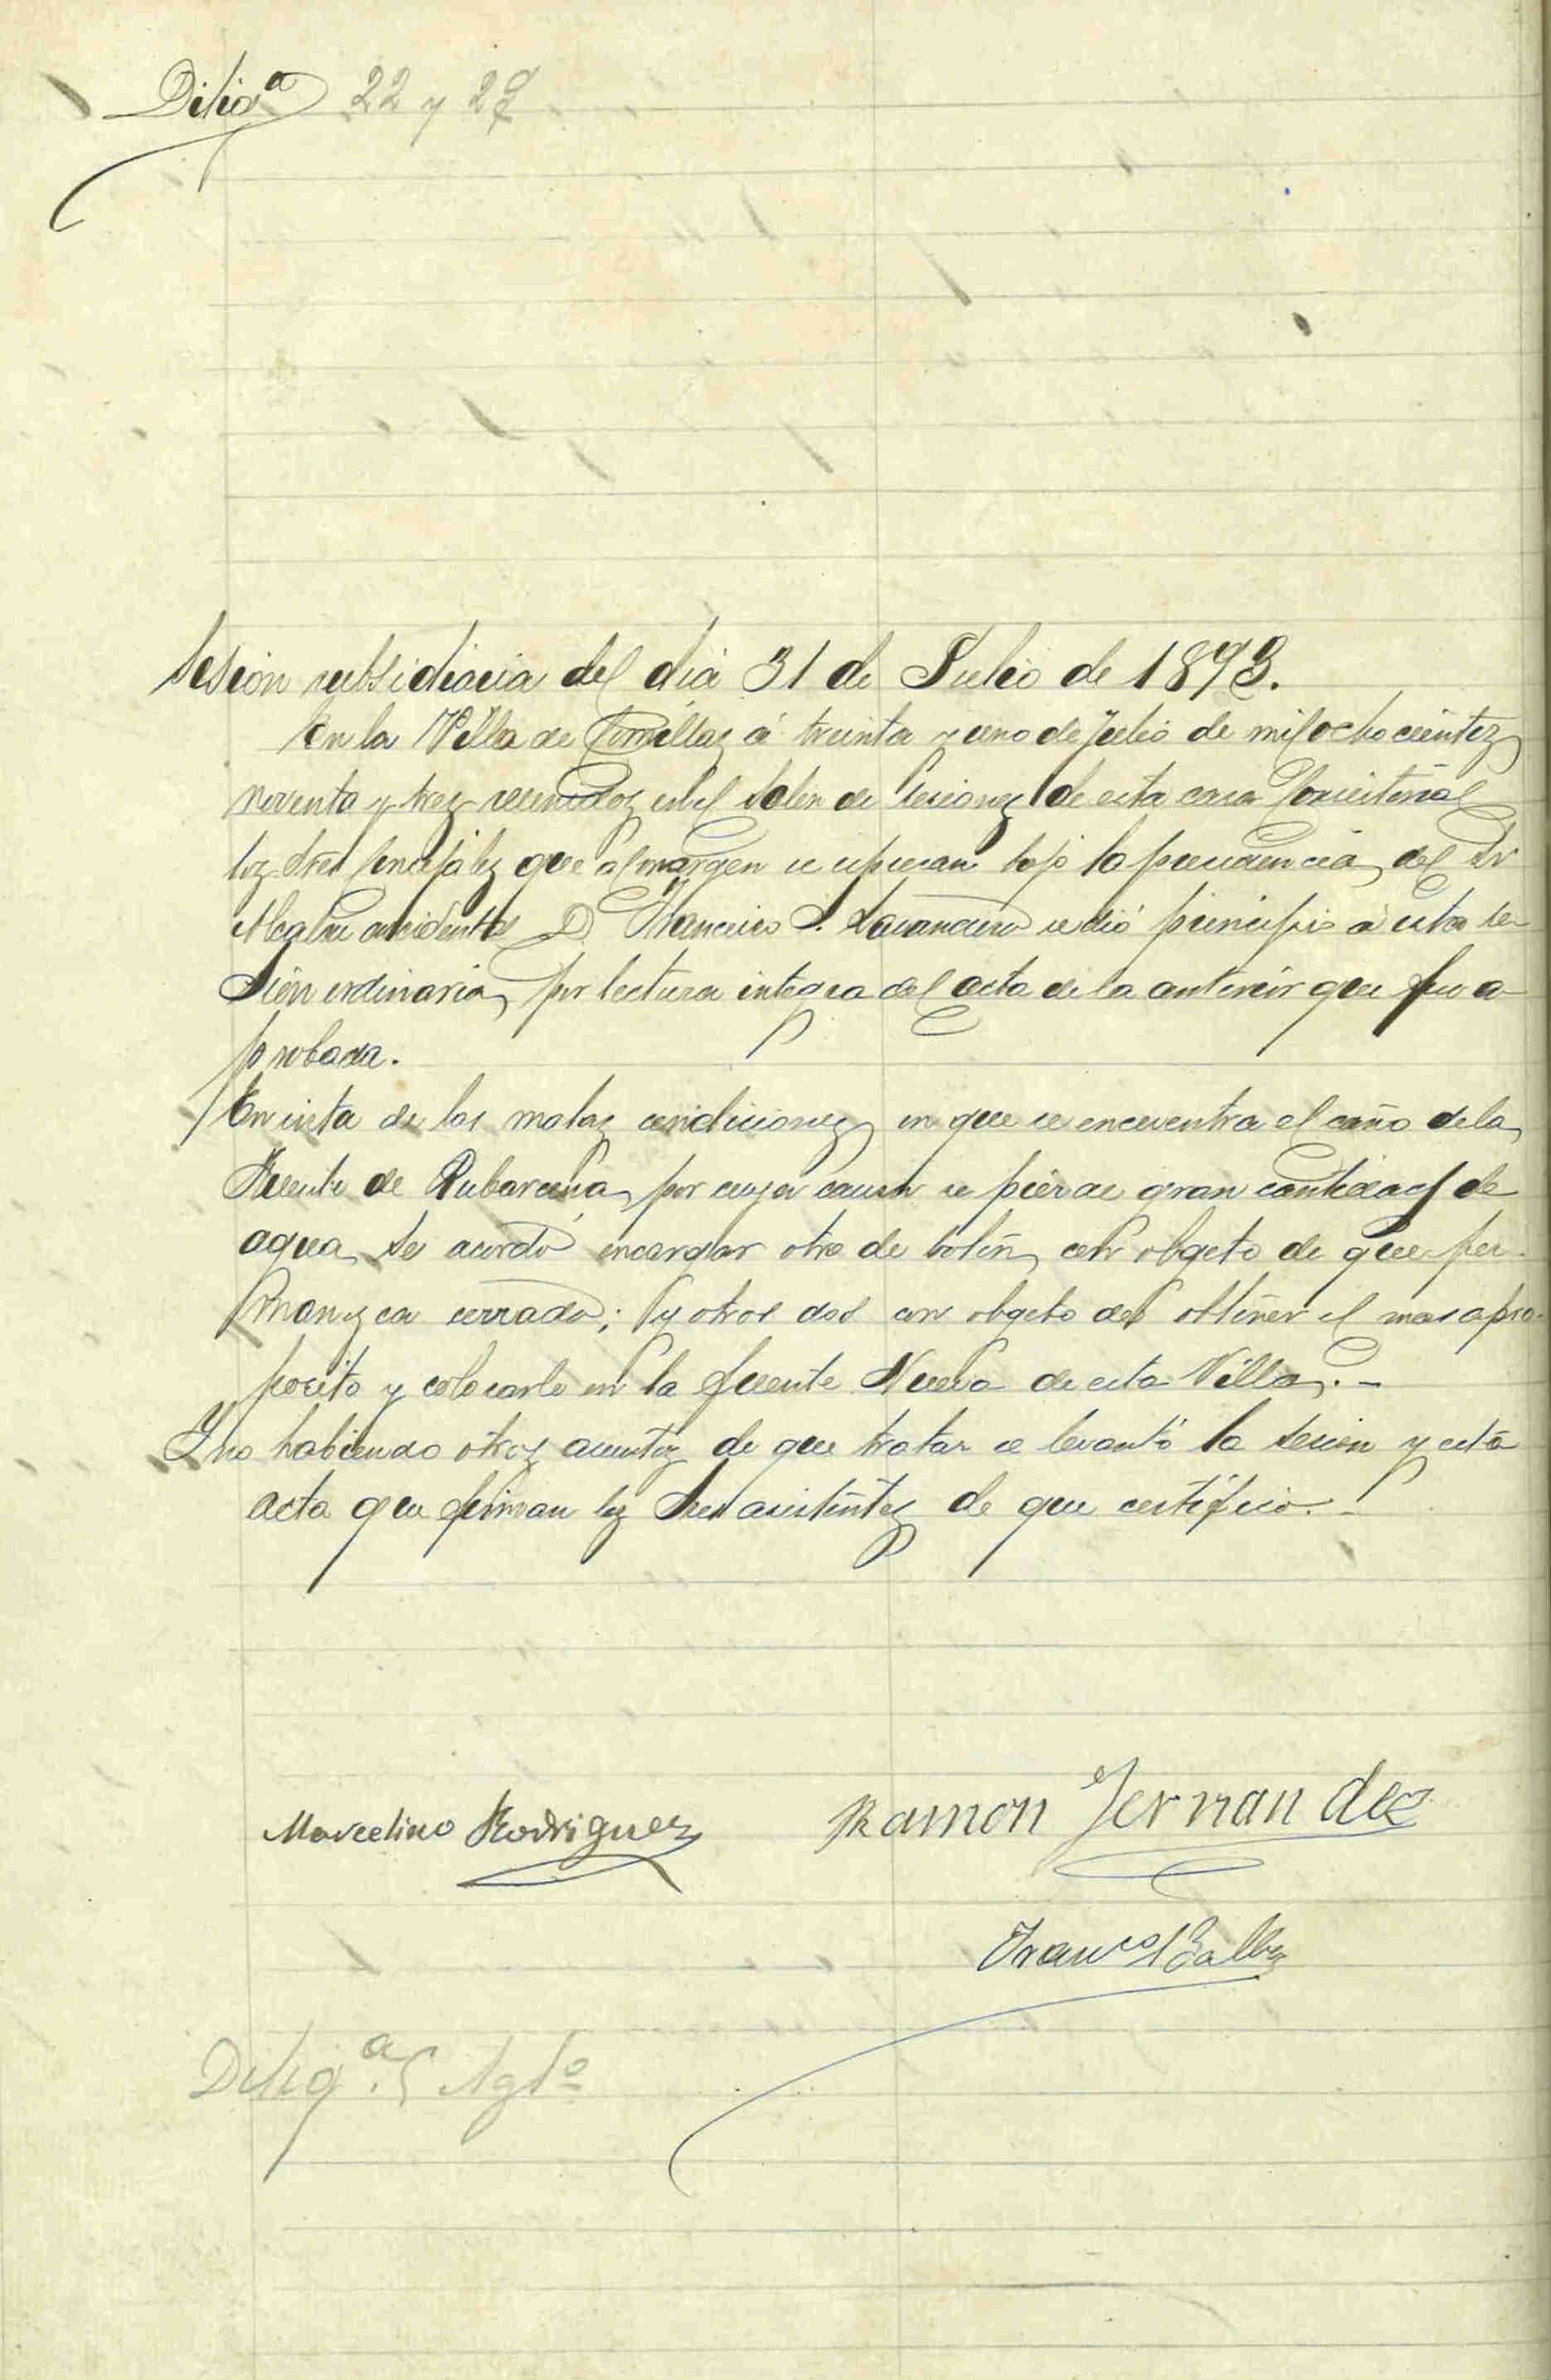 Diligª 22 y 29
Sesion subsidiaria del dia 31 de Julio de 1893.
En la Villa de Comillas á treinta y uno de Julio de mil ochocientos
noventa y tres reunidos en el Salon de Sesiones de esta casa Consistorial
los Sres Concejales que al margen se expresan bajo la presidencia del Sr
Alcalde accidental D Francisco S. se dió principio á esta se-
sion ordinaria, por lectura integra del acta de la anterior que fue a-
probada.
En vista de las malas condiciones en que se encuentra el caño de la
Fuente de Rubarcena, por cuya causa se pierde gran cantidad de
agua, se acordó encargar otro de boton, con obgeto de que per-
manezca cerrado; y otros dos con obgeto de obtener el mas apro-
posito y colocarlo en la fuente Nueva de esta Villa.-
Y no habiendo otros asuntos de que tratar se levantó la sesion y esta
acta que firman los Sres asistentes de que certifico.-
Marcelino Rodriguez Ramon Fernandez
Franco Balbas
Diligª. 5 Agto